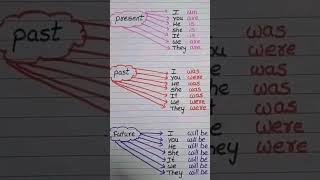 present
I am
You are
He is
She is
It is
We are
They are
past
past
I was
You were
He was
She was
It was
We were
They were
Future
I will be
You will be
He will be
She will be
It will be
We will be
They will be
was
were
was
was
was
were
were